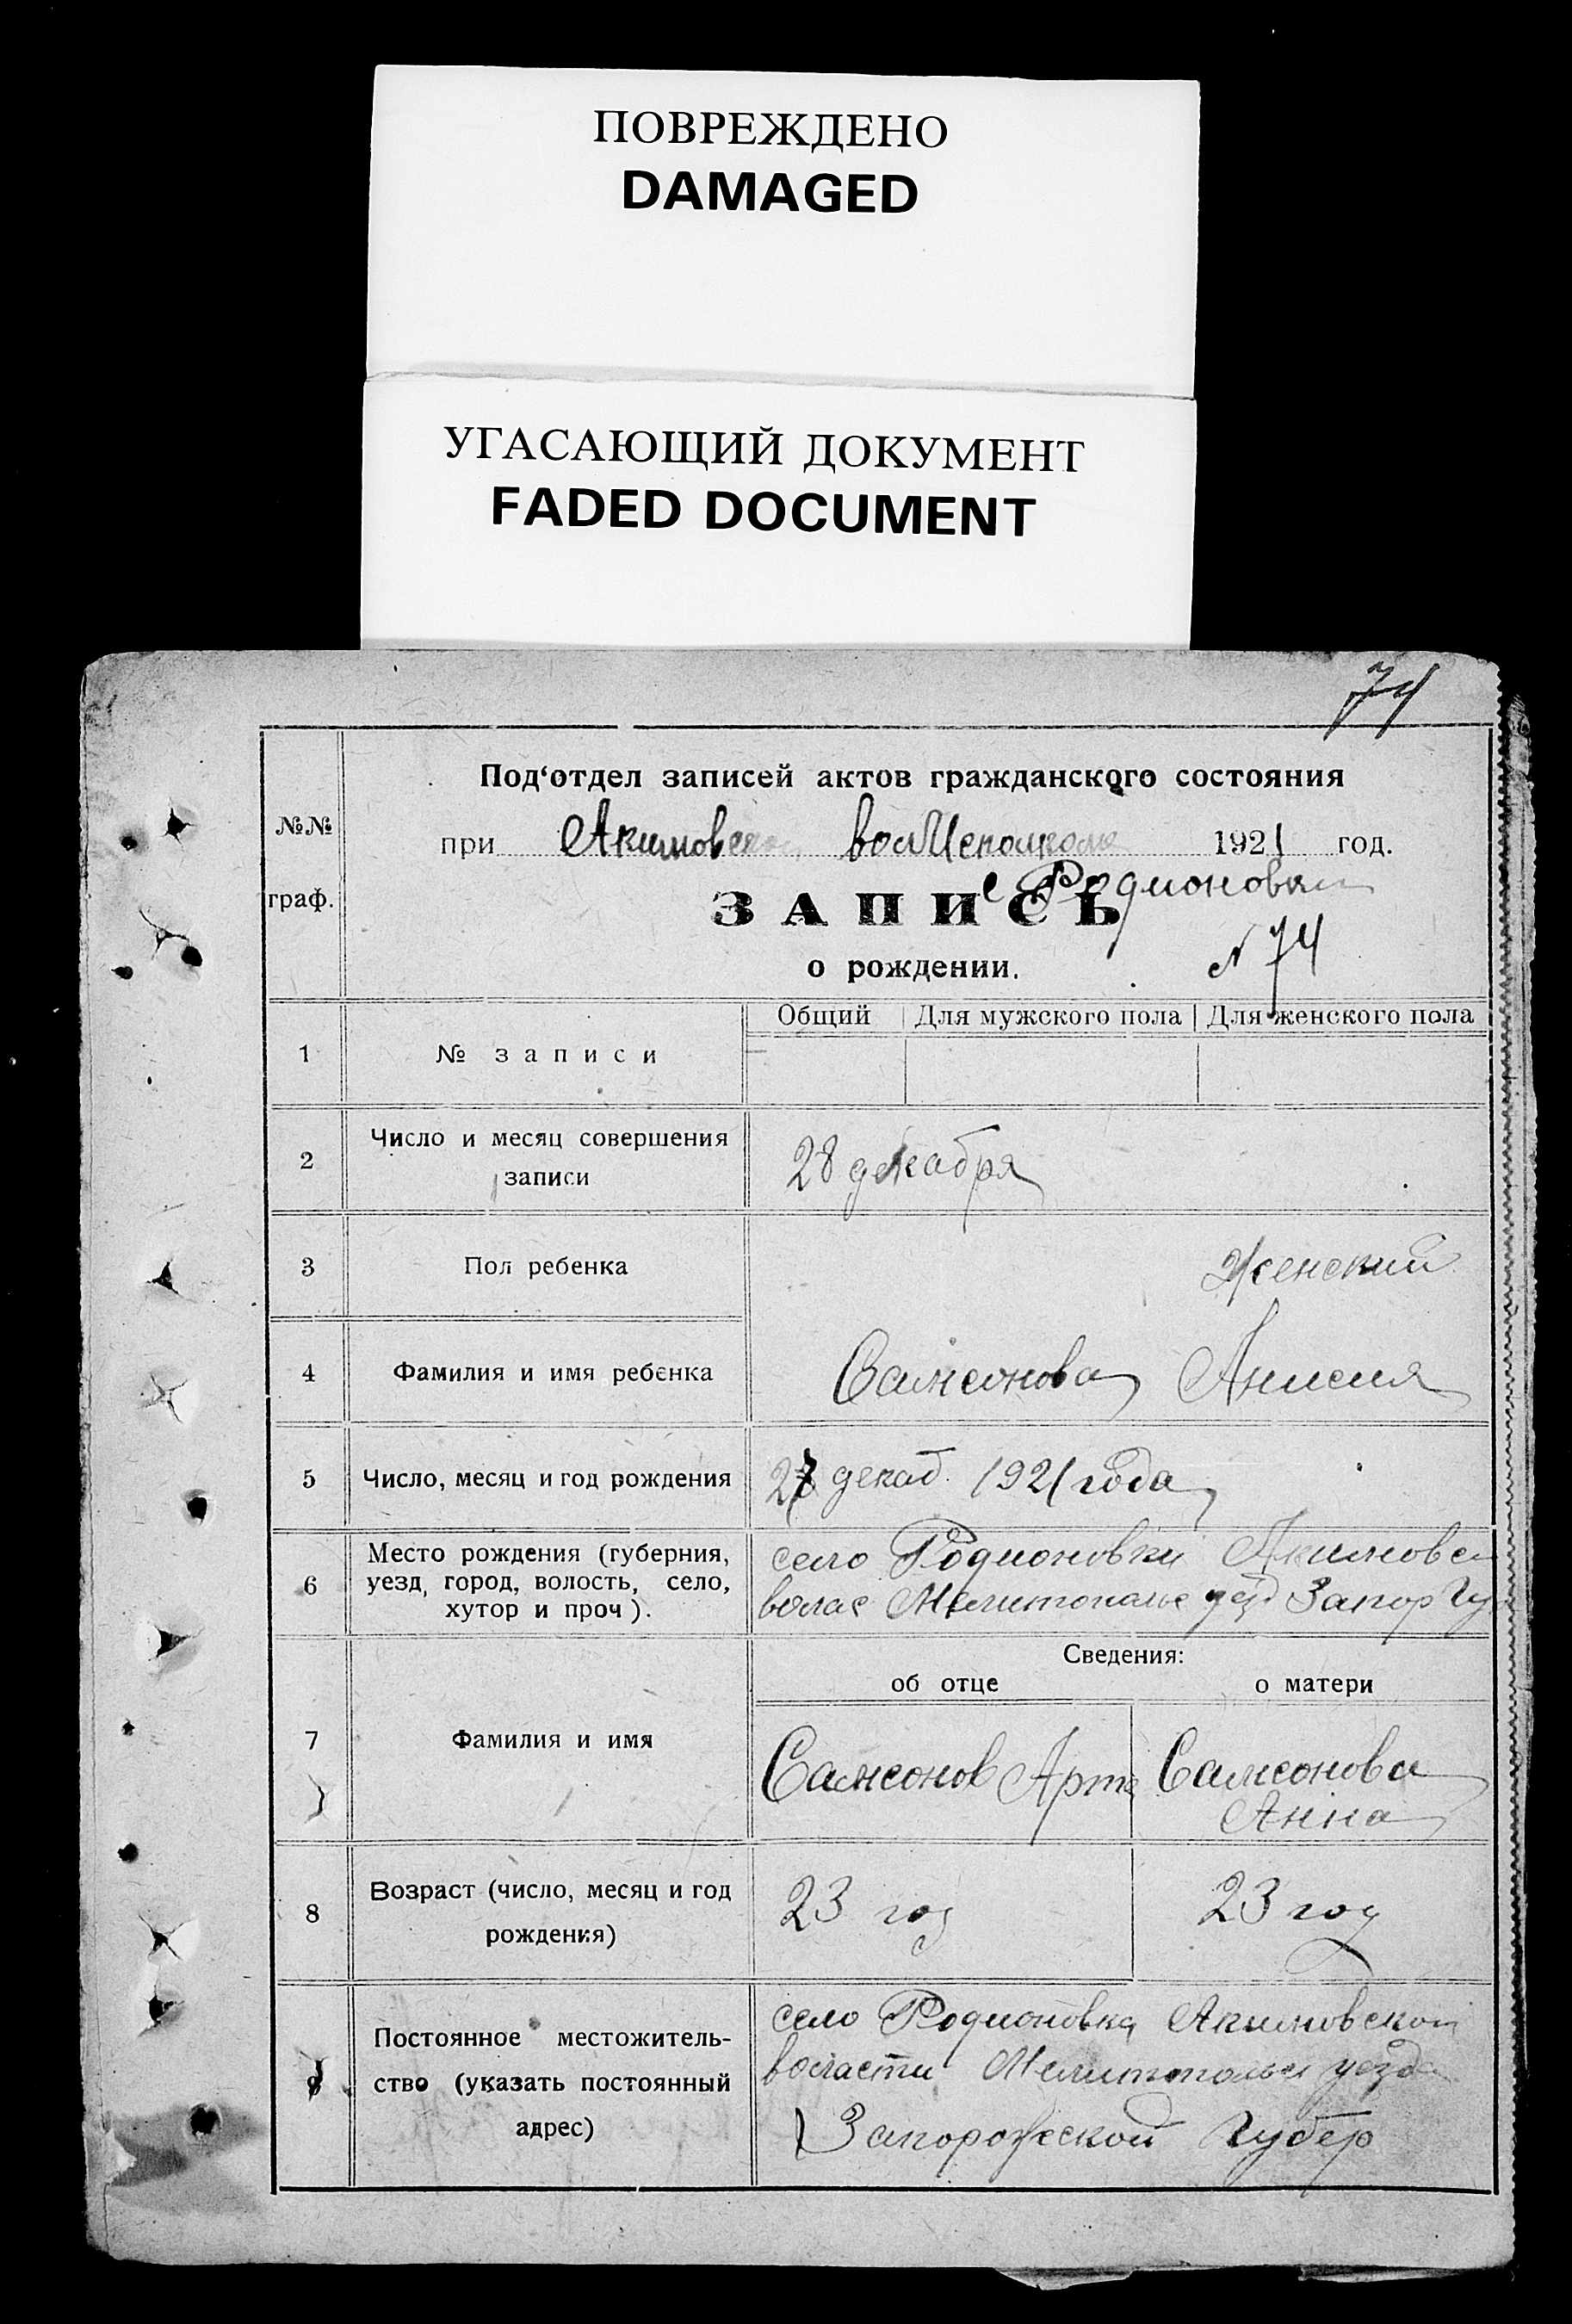 ПОВРЕЖДЕНО
DAMAGED
УГАСАЮЩИЙ ДОКУМЕНТ
FADED DOCUMENT
74
Под‘отдел записей актов гражданского состояния
№№ граф.
при Акимовско волИсполкоме 1921 год.
с Родионовки
ЗАПИСЬ
о рождении.
N 74
Общий Для мужского пола Для женского пола
1 № записи
2 Число и месяц совершения
записи
28 декабря
3 Пол ребенка Женский
4 Фамилия и имя ребенка Самсонова Анисия
5 Число, месяц и год рождения 27 декаб. 1921 года
6 Место рождения (губерния,
уезд, город, волость, село,
хутор и проч).
село Родионовки Акимовск
волас Мелитополье уезд Запор Гу
Сведения:
об отце о матери
7 Фамилия и имя
Самсонов Арте
Самсонова
Анна
8 Возраст (число, месяц и год
рождения)
23 год
23 год
9 Постоянное местожитель-
ство (указать постоянный
адрес)
село Родионовка Акимовской
воласти Мелитопольск уезда
Запорожеской Губер